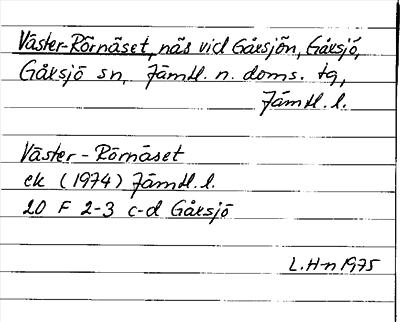 Väster-Rörnäset, näs vid Gåxsjön, Gåxsjö,
Gåxsjö sn, Jämtl. n. doms. tg,
Jämtl. l.
Väster-Rörnäset
ek (1974) Jämtl. l.
20 F 2-3 c-d Gåxsjö
L.H-n 1975